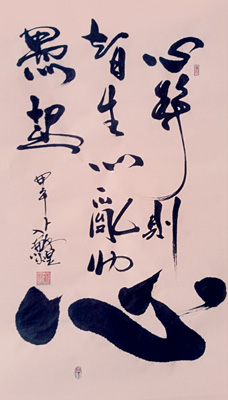 心静则
智生心亂则
愚起
甲午
心